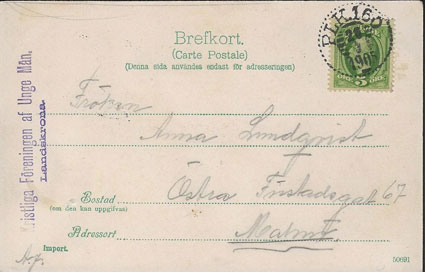 Brefkort.
(Carte Postale)
(Denna sida användes endast för adresseringen)
PLK 160
Kristliga Föreningen af Unge Män.
Landskrona.
Fröken
Anna Lundqvist
Bostad
(om den kan uppgifvas)
Östra 67
Adressort
Malmö
Import.
50691